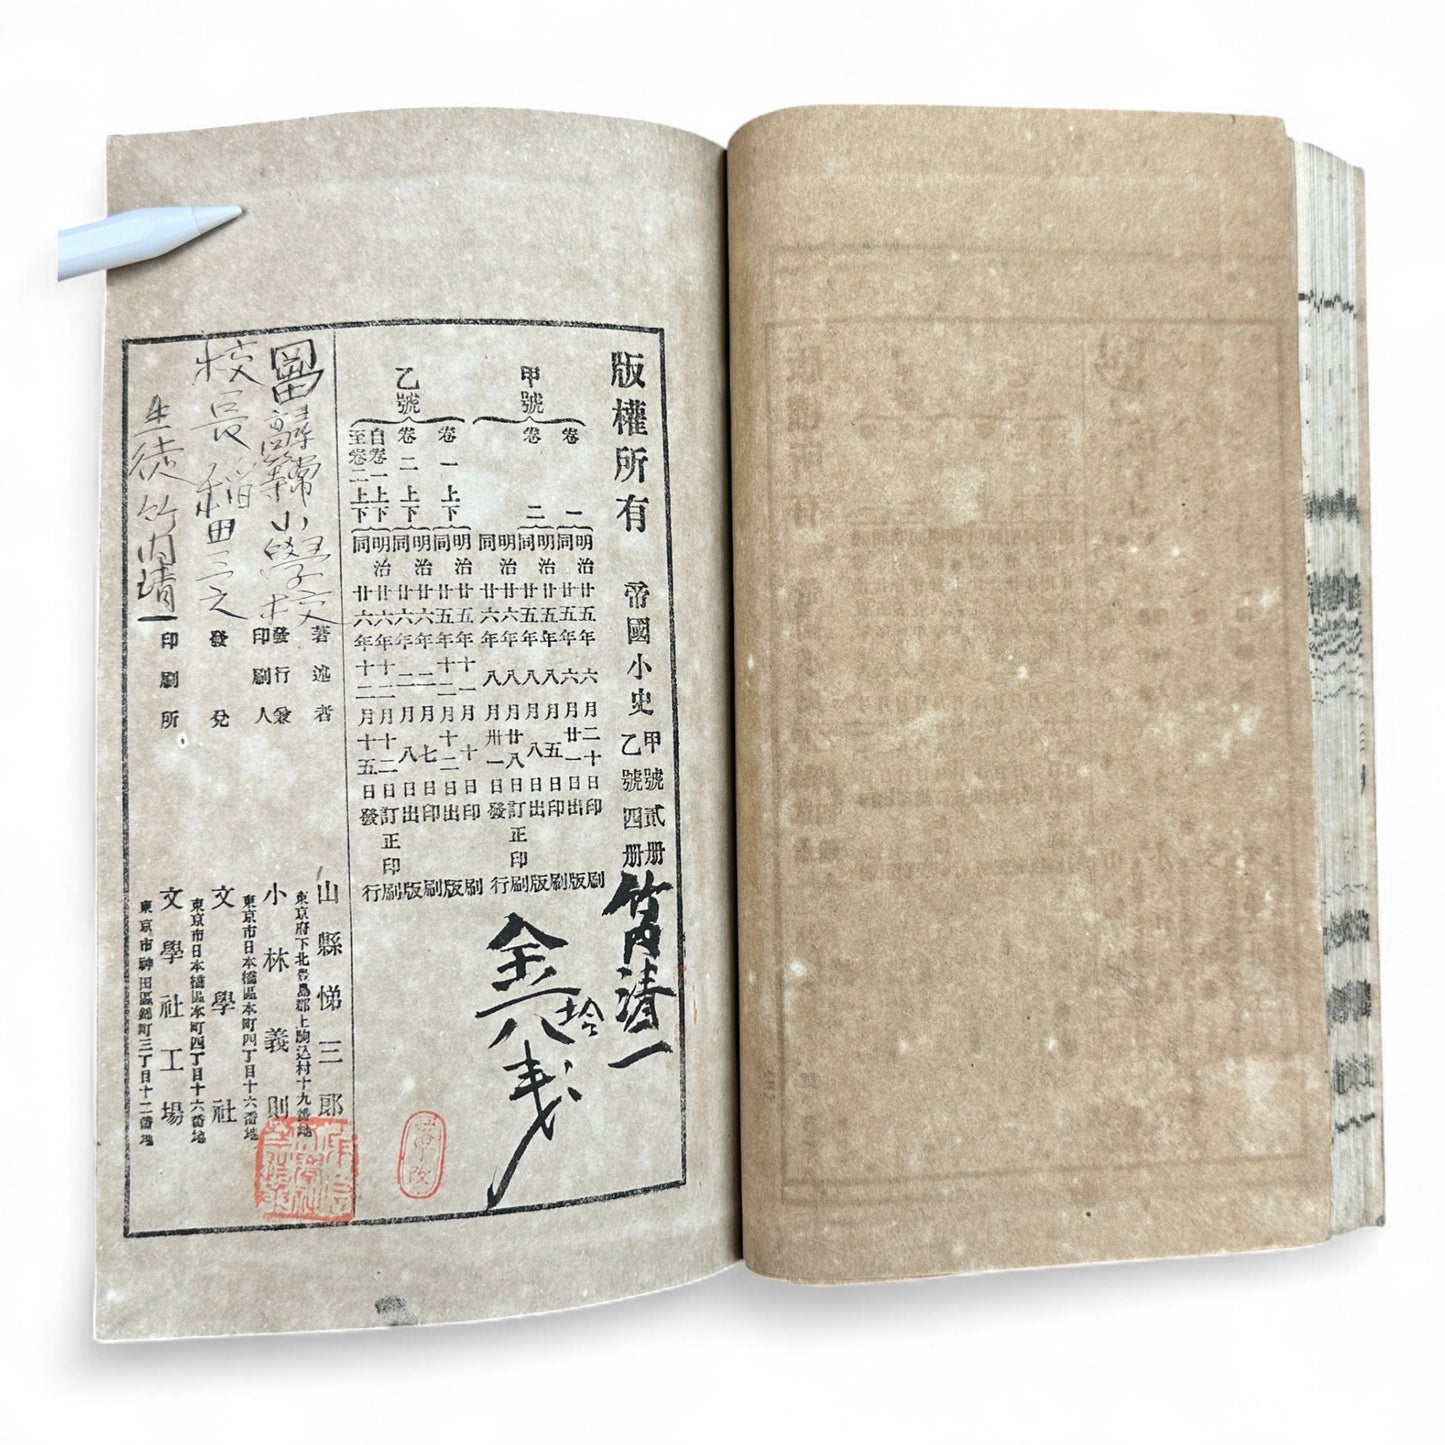 版權所有
帝國小史 甲號貳册
乙號四册
竹内清一
甲號
卷一
明治廿五年六月二十日印刷
同廿五年六月廿一日出版
卷二
明治廿五年八月五日印刷
同廿五年八月八日出版
明治廿六年八月廿八日訂正印刷
同廿六年八月卅一日發行
乙號
卷一上下
明治廿五年十一月十日印刷
同廿五年十二月十二日出版
卷二上下
明治廿六年二月七日印刷
同廿六年二月八日出版
自卷一上下
至卷二上下
明治廿六年十二月十二日訂正印刷
同廿六年十二月十五日發行
金八拾
著述者 山縣悌三郎
東京府下北豊島郡上駒込村十九番地
發行兼
印刷人 小林義則
東京市日本橋區本町四丁目十六番地
發兌 文學社
東京市日本橋區本町四丁目十六番地
印刷所 文學社工場
東京市神田區錦町三丁目十二番地
尋常小學校
校長 稲田
生徒竹内清一